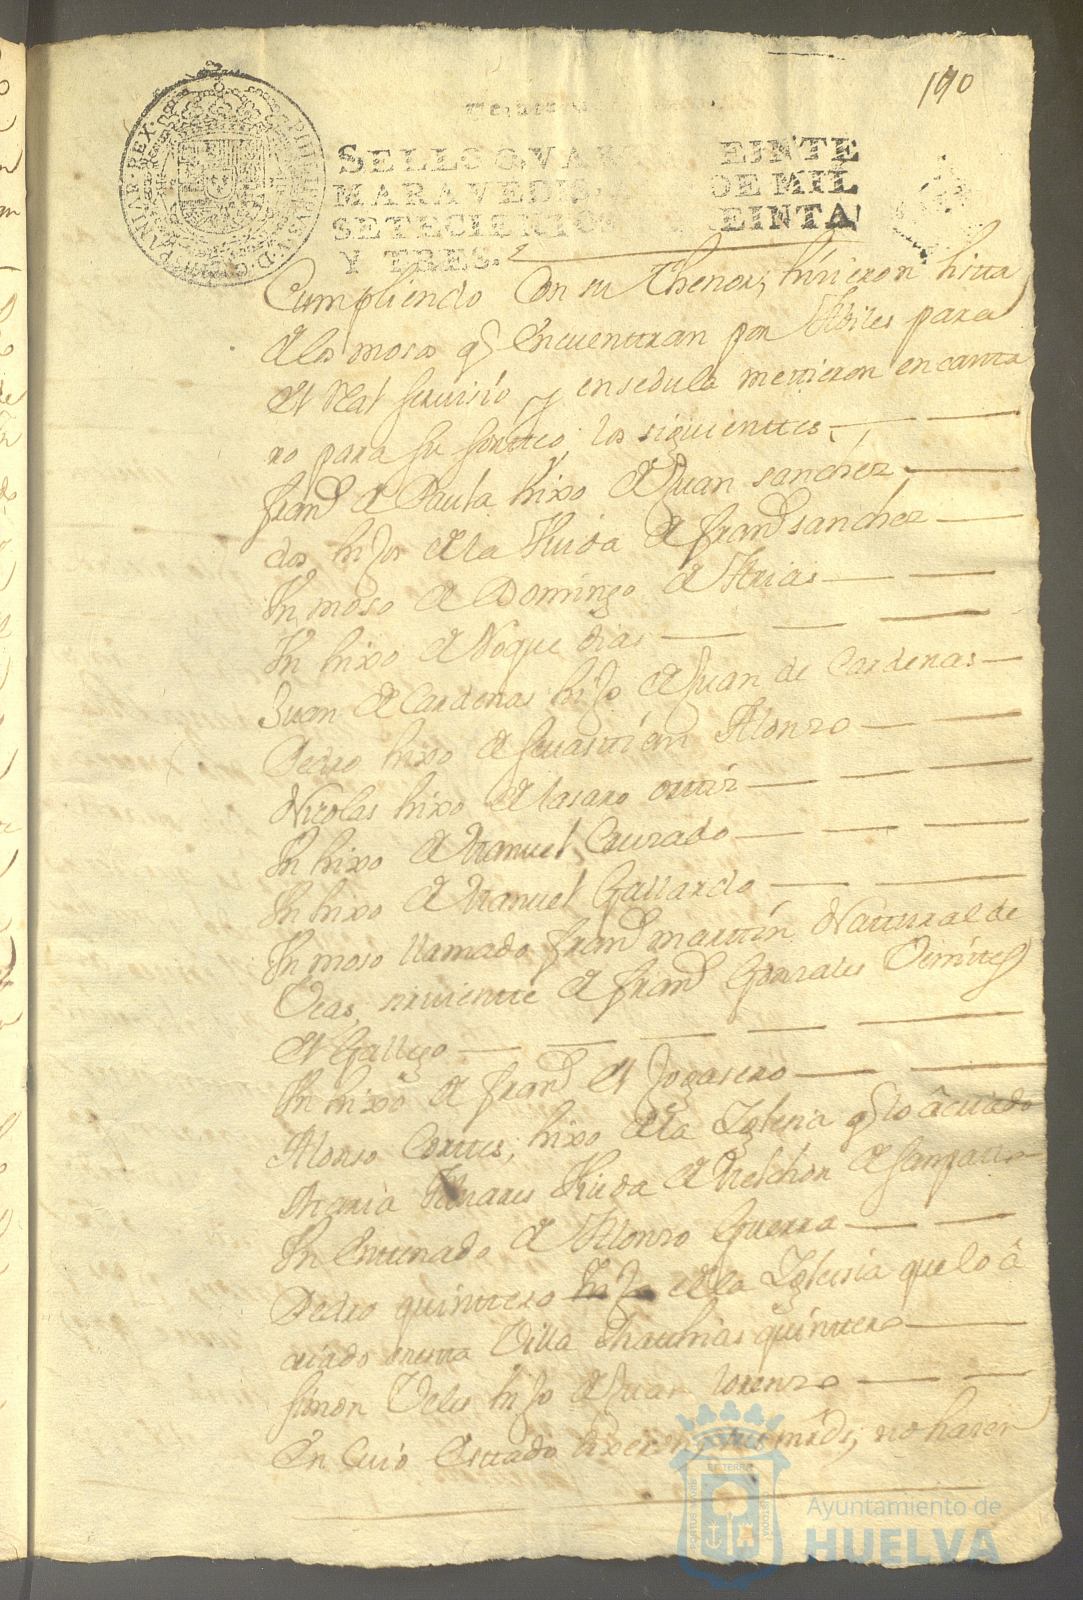 190
PHILIPPUS V D G HISPANIAR REX
SELLO QVAR EINTE
MARAVEDIS DE MIL
SETECIENTOS EINTA
Y TRES.
Cumpliendo Con su thenor, hisieron lista
de los mosos q̃ encuentran por Abiles para
el Real seruisio y en sedula metieron en canta
ro para su sorteo, los siguienttes
franco de Paula hixo de Juan sanchez
dos hijos de la Viuda de franco sanchez
Un moso de Domingo de Arias
Un hixo de Roque dias
Juan de Cardenas hijo de Juan de Cardenas
Pedro hixo de seuastian Alonzo
Nicolas hixo de lasaro ortiz
Un hixo de Manuel Conrado
Un hixo de Manuel Gallardo
Un moso llamado franco martin Natural de
Beas, siruiente de franco Gonzales Benites
el Gallego
Un hixo de franco el
Alonso Cortes, hixo de la Iglesia q̃ lo â criado
Maria Viuda de Melchor de
Un Entenado de Alonzo Guerra
Pedro quinttero hijo de la Iglesia que lo â
criado en esta Villa Mathias quinttero
simon Velis hijo de Juan lorenzo
En Cuio Esttado dixeron sus mrds, no hazer
ET TERRÆ
CUSTODIA
PORTUS MARIS
Ayuntamiento de
HUELVA